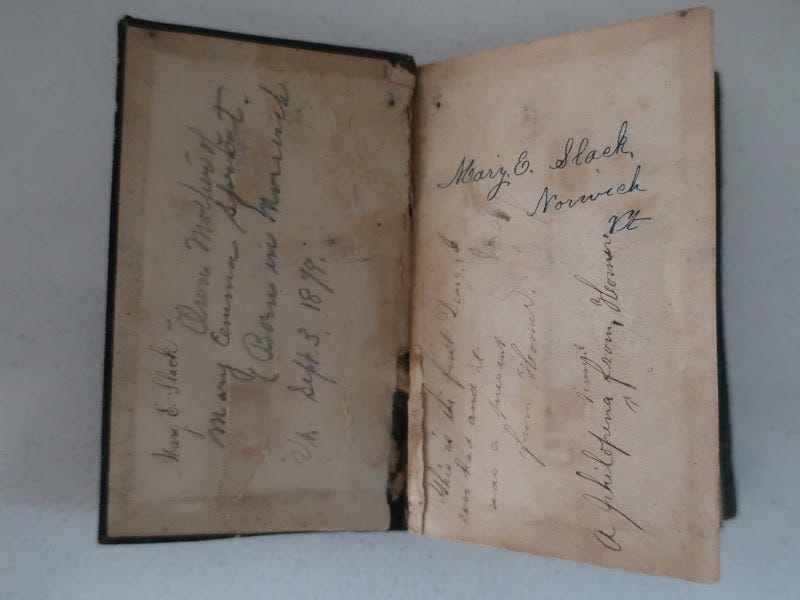 Mary E. Slack -
Mother of
Mary Emma
Born in Norwich
Vt. Sept. 3, 1879.
Mary, E. Slack,
Norwich
Vt
This is the first
ever had and it
was a present
from Homer.
A philopena from, Homer